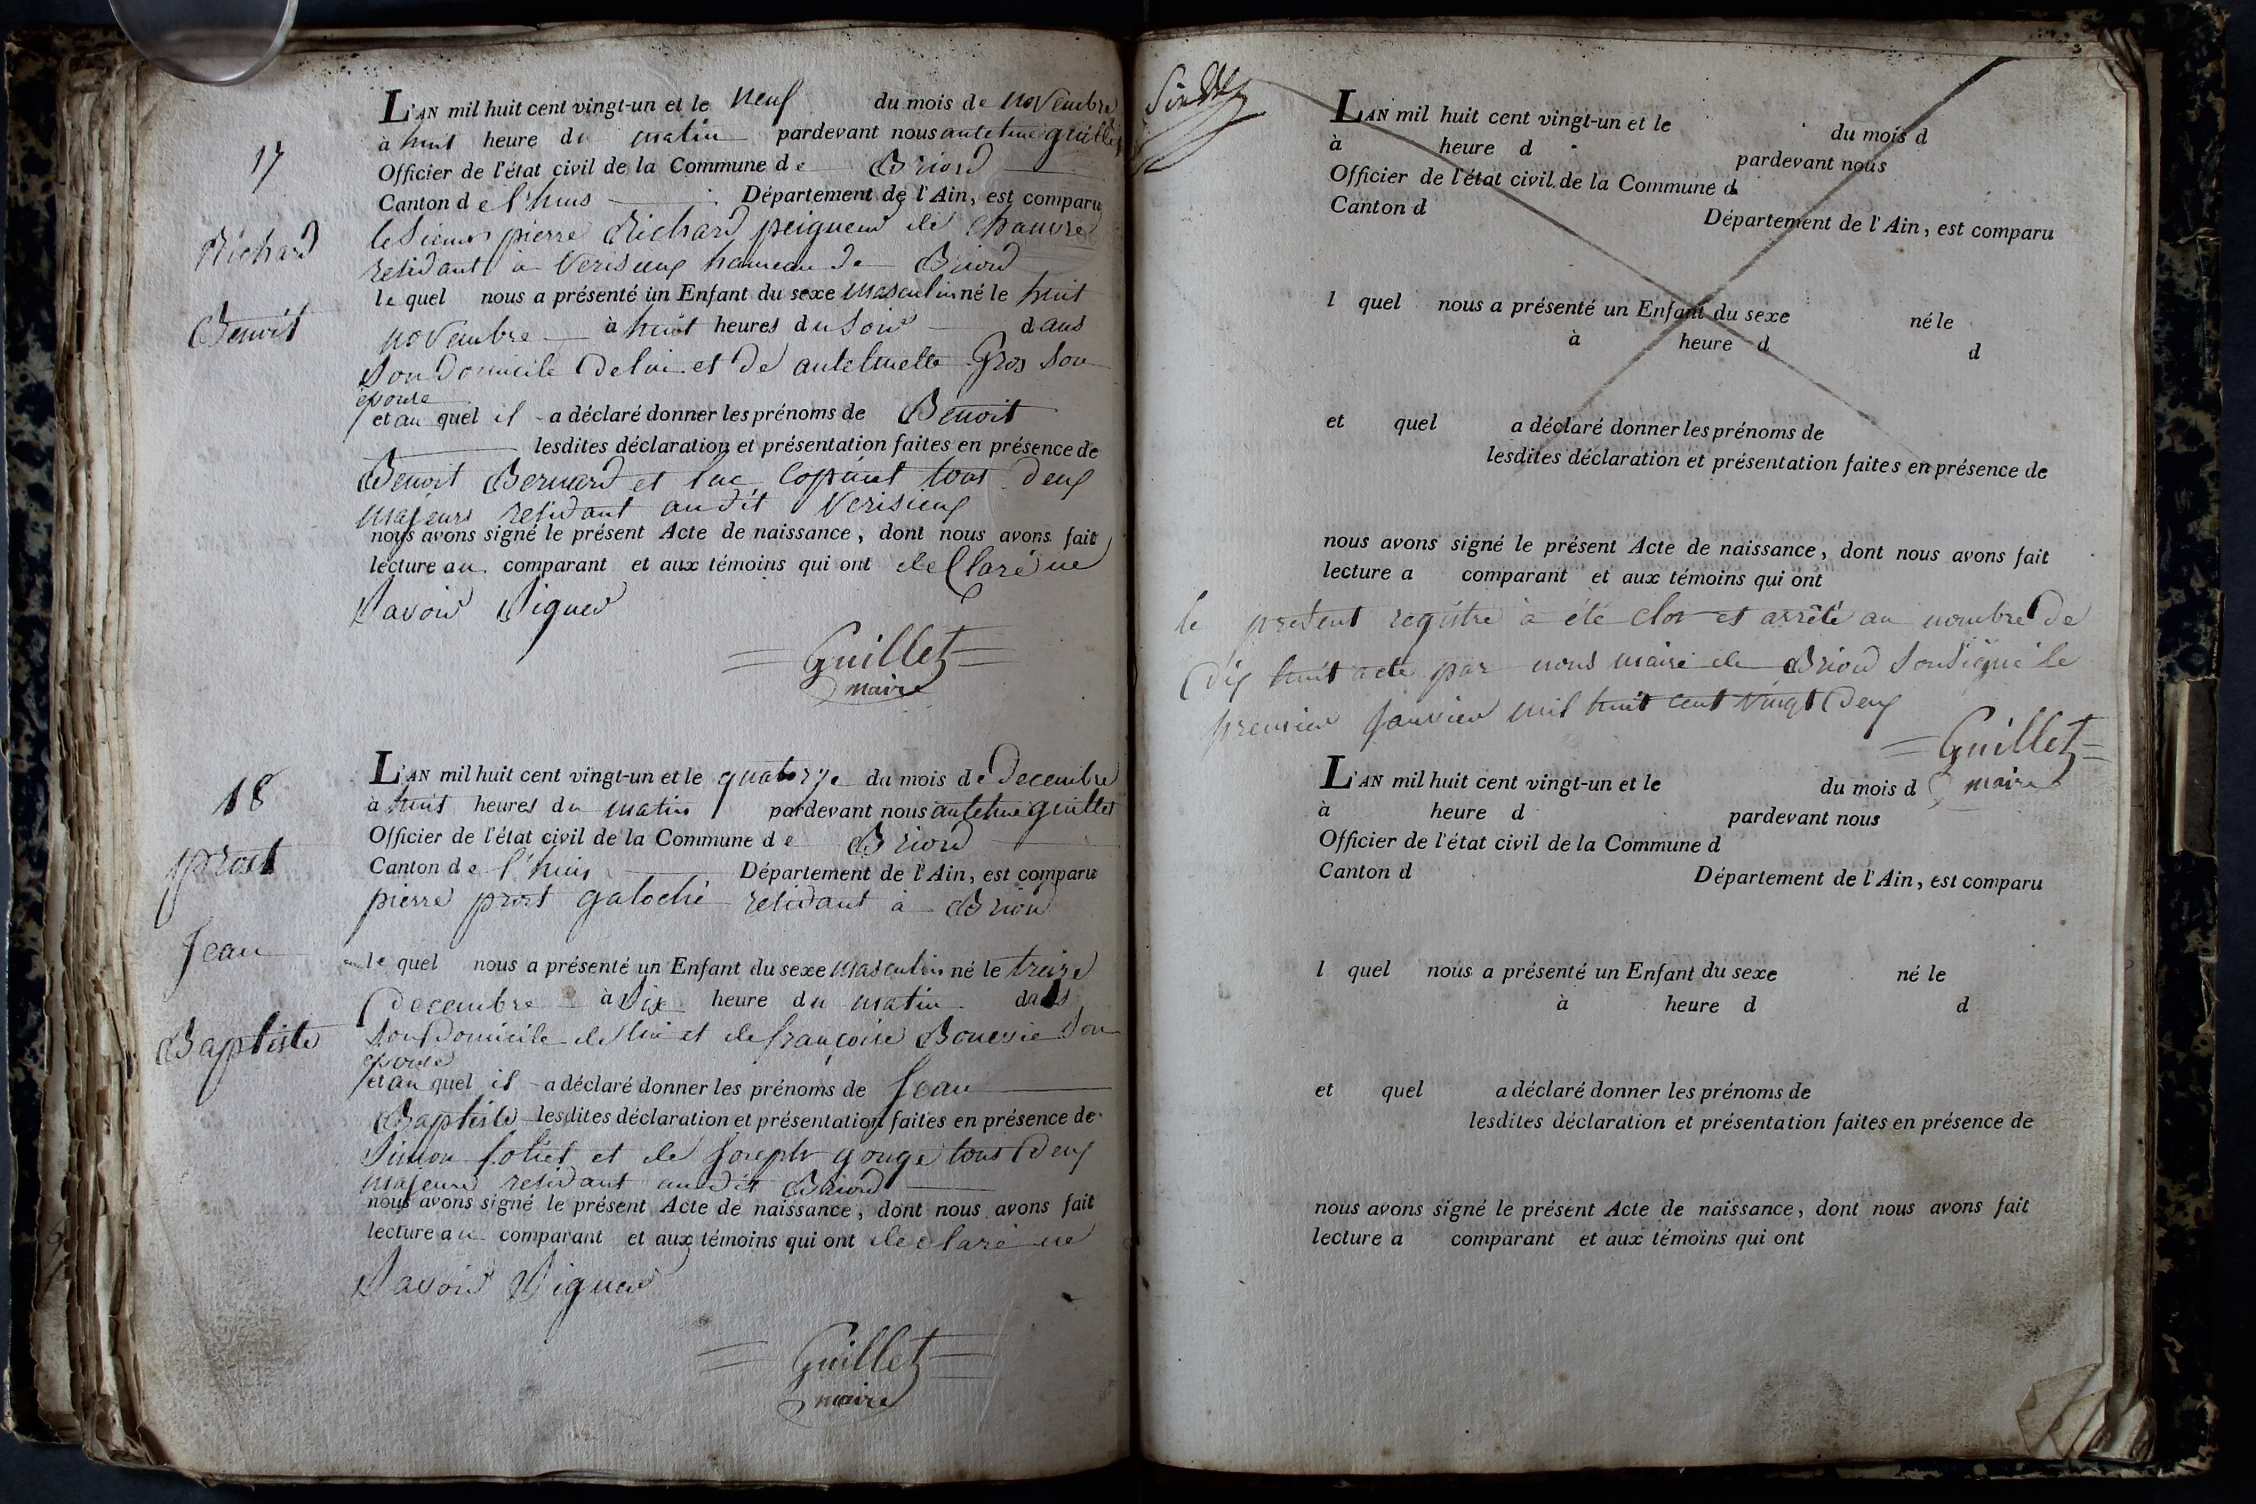 17
Richard
Benoit
L'AN mil huit cent vingt-un et le neuf du mois de novembre
à huit heure du matin pardevant nous antelme guillet
Officier de l'état civil de la Commune de Briord
Canton de l'huis Département de l'Ain, est comparu
le Sieur pierre Richard peigneur de chanvre
residant à Verisieux hameau de Briord
le quel nous a présenté un Enfant du sexe masculin né le huit
novembre à huit heures du Soir dans
Son Domicile de lui et de antelmette Gros Son
epouse
et au quel il a déclaré donner les prénoms de Benoit
lesdites déclaration et présentation faites en présence de
Benoit Bernard et luc tous deux
majeurs residant audit Verisieux
nous avons signé le présent Acte de naissance, dont nous avons fait
lecture au comparant et aux témoins qui ont declaré ne
Savoir Signer
Guillet
maire
18
prost
Jean
Baptiste
L'AN mil huit cent vingt-un et le quatorze du mois de Decembre
à huit heures du matin pardevant nous antelme guillet
Officier de l'état civil de la Commune de Briord
Canton de l'huis Département de l'Ain, est comparu
pierre prost galoche residant à Briord
le quel nous a présenté un Enfant du sexe masculin né le treize
Decembre à Six heure du matin dans
Son Domicile de lui et de françoise Bouvrie Son
epouse
et au quel il a déclaré donner les prénoms de Jean
Baptiste lesdites déclaration et présentation faites en présence de
Simon et de Joseph gouge tous Deux
majeurs residant audit Briord
nous avons signé le présent Acte de naissance, dont nous avons fait
lecture au comparant et aux témoins qui ont declaré ne
Savoir Signer
Guillet
maire
L'AN mil huit cent vingt-un et le du mois d
à heure d pardevant nous
Officier de l'état civil de la Commune d
Canton d Département de l'Ain, est comparu
l quel nous a présenté un Enfant du sexe né le
à heure d d
et quel a déclaré donner les prénoms de
lesdites déclaration et présentation faites en présence de
nous avons signé le présent Acte de naissance, dont nous avons fait
lecture a comparant et aux témoins qui ont
le présent registre à été clos et arrêté au nombre de
Dix huit acte par nous maire de Briord Soussigné le
premier Janvier mil huit cent vingt Deux
Guillet
maire
L'AN mil huit cent vingt-un et le du mois d
à heure d pardevant nous
Officier de l'état civil de la Commune d
Canton d Département de l'Ain, est comparu
l quel nous a présenté un Enfant du sexe né le
à heure d d
et quel a déclaré donner les prénoms de
lesdites déclaration et présentation faites en présence de
nous avons signé le présent Acte de naissance, dont nous avons fait
lecture a comparant et aux témoins qui ont